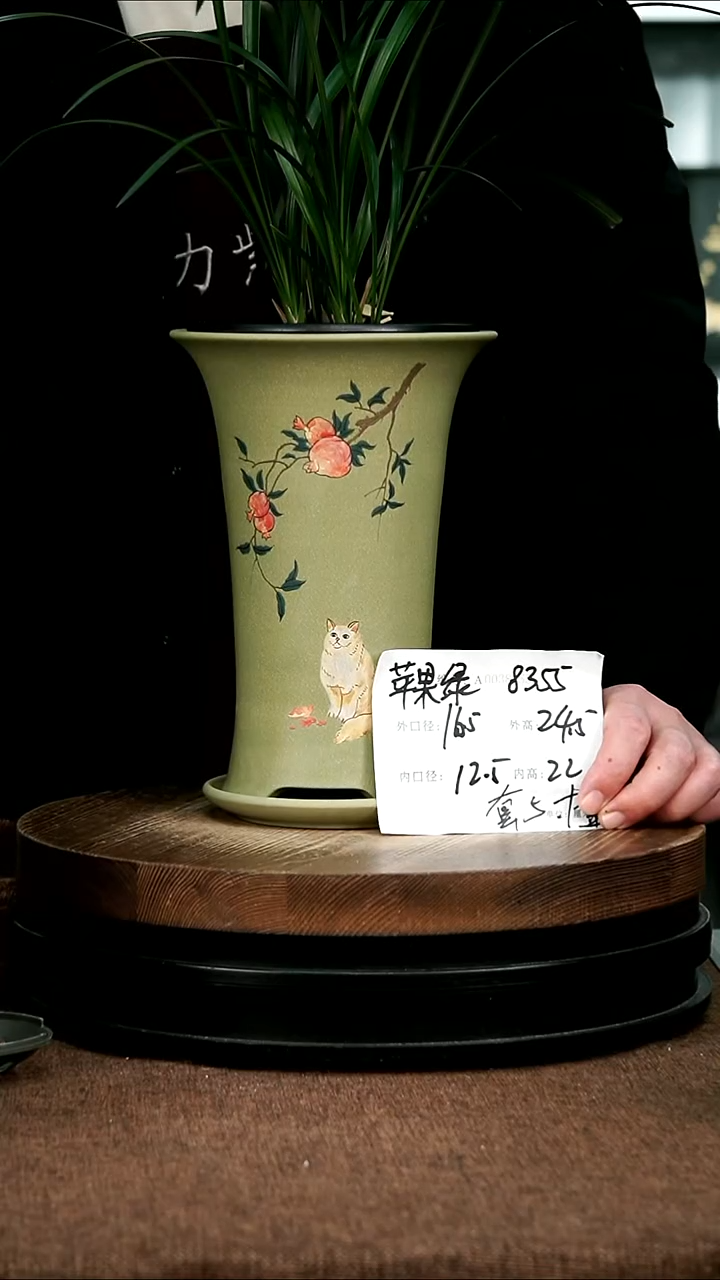 力
苹果绿 8355
外口径: 16.5 外高: 24.5
内口径: 12.5 内高: 22
套5